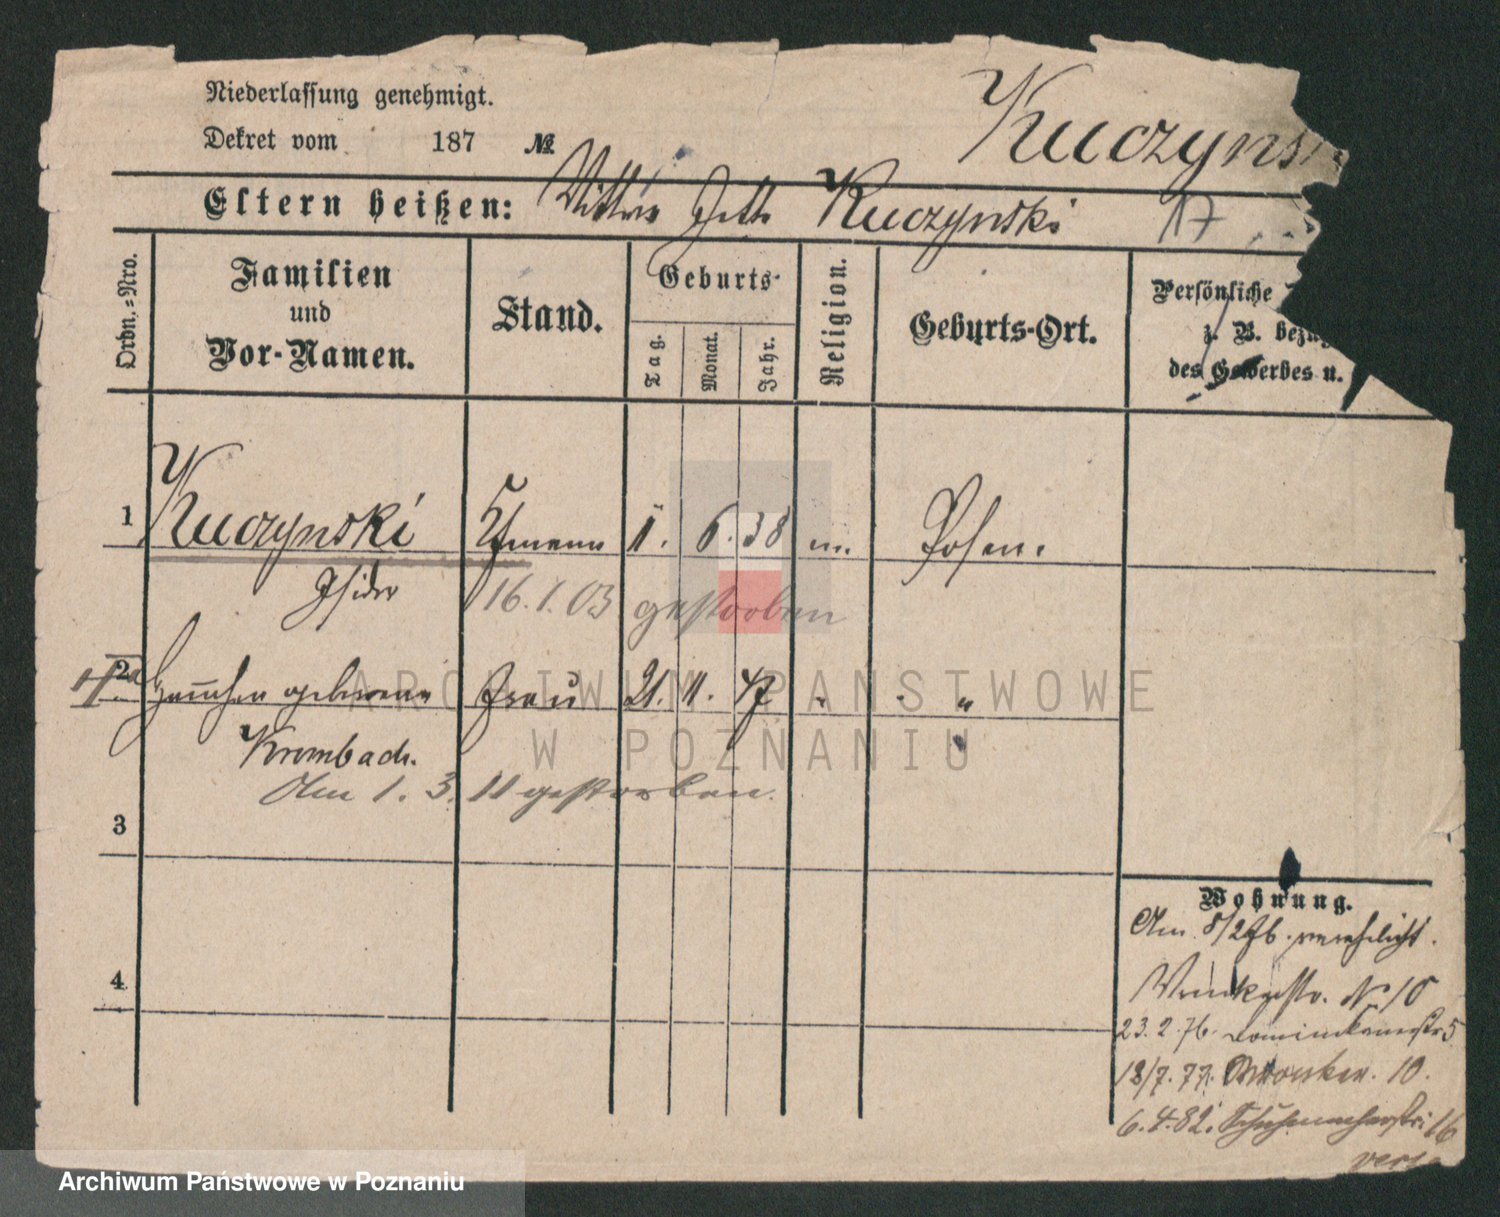 Niederlassung genehmigt.
Dekret vom 187 №
Kuczyns
Eltern heißen: Kuczynski
17
Ordn.-Nro.
Familien
und
Vor-Namen.
Stand.
Geburts-
Tag.
Monat.
Jahr.
Religion.
Geburts-Ort.
Persönliche
z. B. bezüg
des Gewerbes u.
1 Kuczynski Kfmann 1. 6. 38 m. Posen.
Isidor 16.1.03 gestorben
2 geborene Frau 21. 11. 47 " " "
Krombach.
Am 1. 3. 11 gestorben.
3
4
Wohnung.
Am 8/2 76. verehelicht.
Wronkerstr. No 10
23.2.76. Dominikanerstr 5
18/7.77. Wronker. 10.
6.4.82. Schuhmacherstr. 16
ARCHIWUM PAŃSTWOWE
W POZNANIU
Archiwum Państwowe w Poznaniu